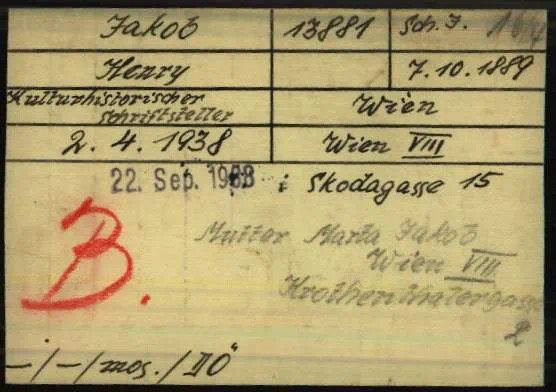 Jakob 13881 Sch. J.
Henry 7.10.1889
Kulturhistorischer
Schriftsteller Wien
2. 4. 1938 Wien VIII
22. Sep. 1938 Skodagasse 15
B.
Mutter Marta Jakob
Wien VIII
Krothenthalergasse
2
-/-/mos./DÖ